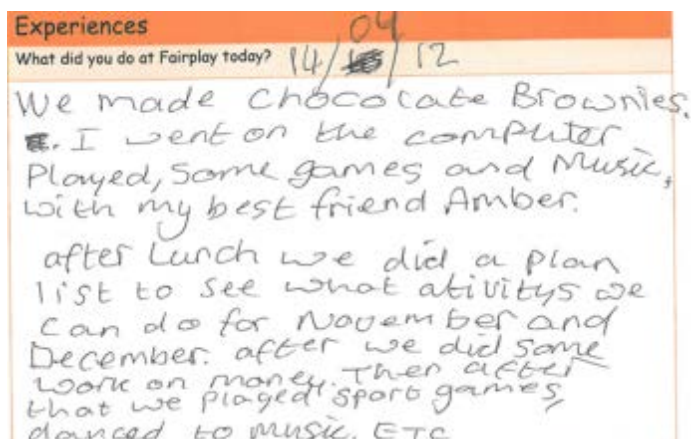 Experiences
04
What did you do at Fairplay today? 14/ /12
We made Chocolate Brownies.
. I went on the computer
Played, Some games and Music,
with my best friend Amber.
after Lunch we did a plan
list to see what ativitys we
can do for November and
December. after we did some
work on money. Then after
that we played sport games,
danced to music. ETC